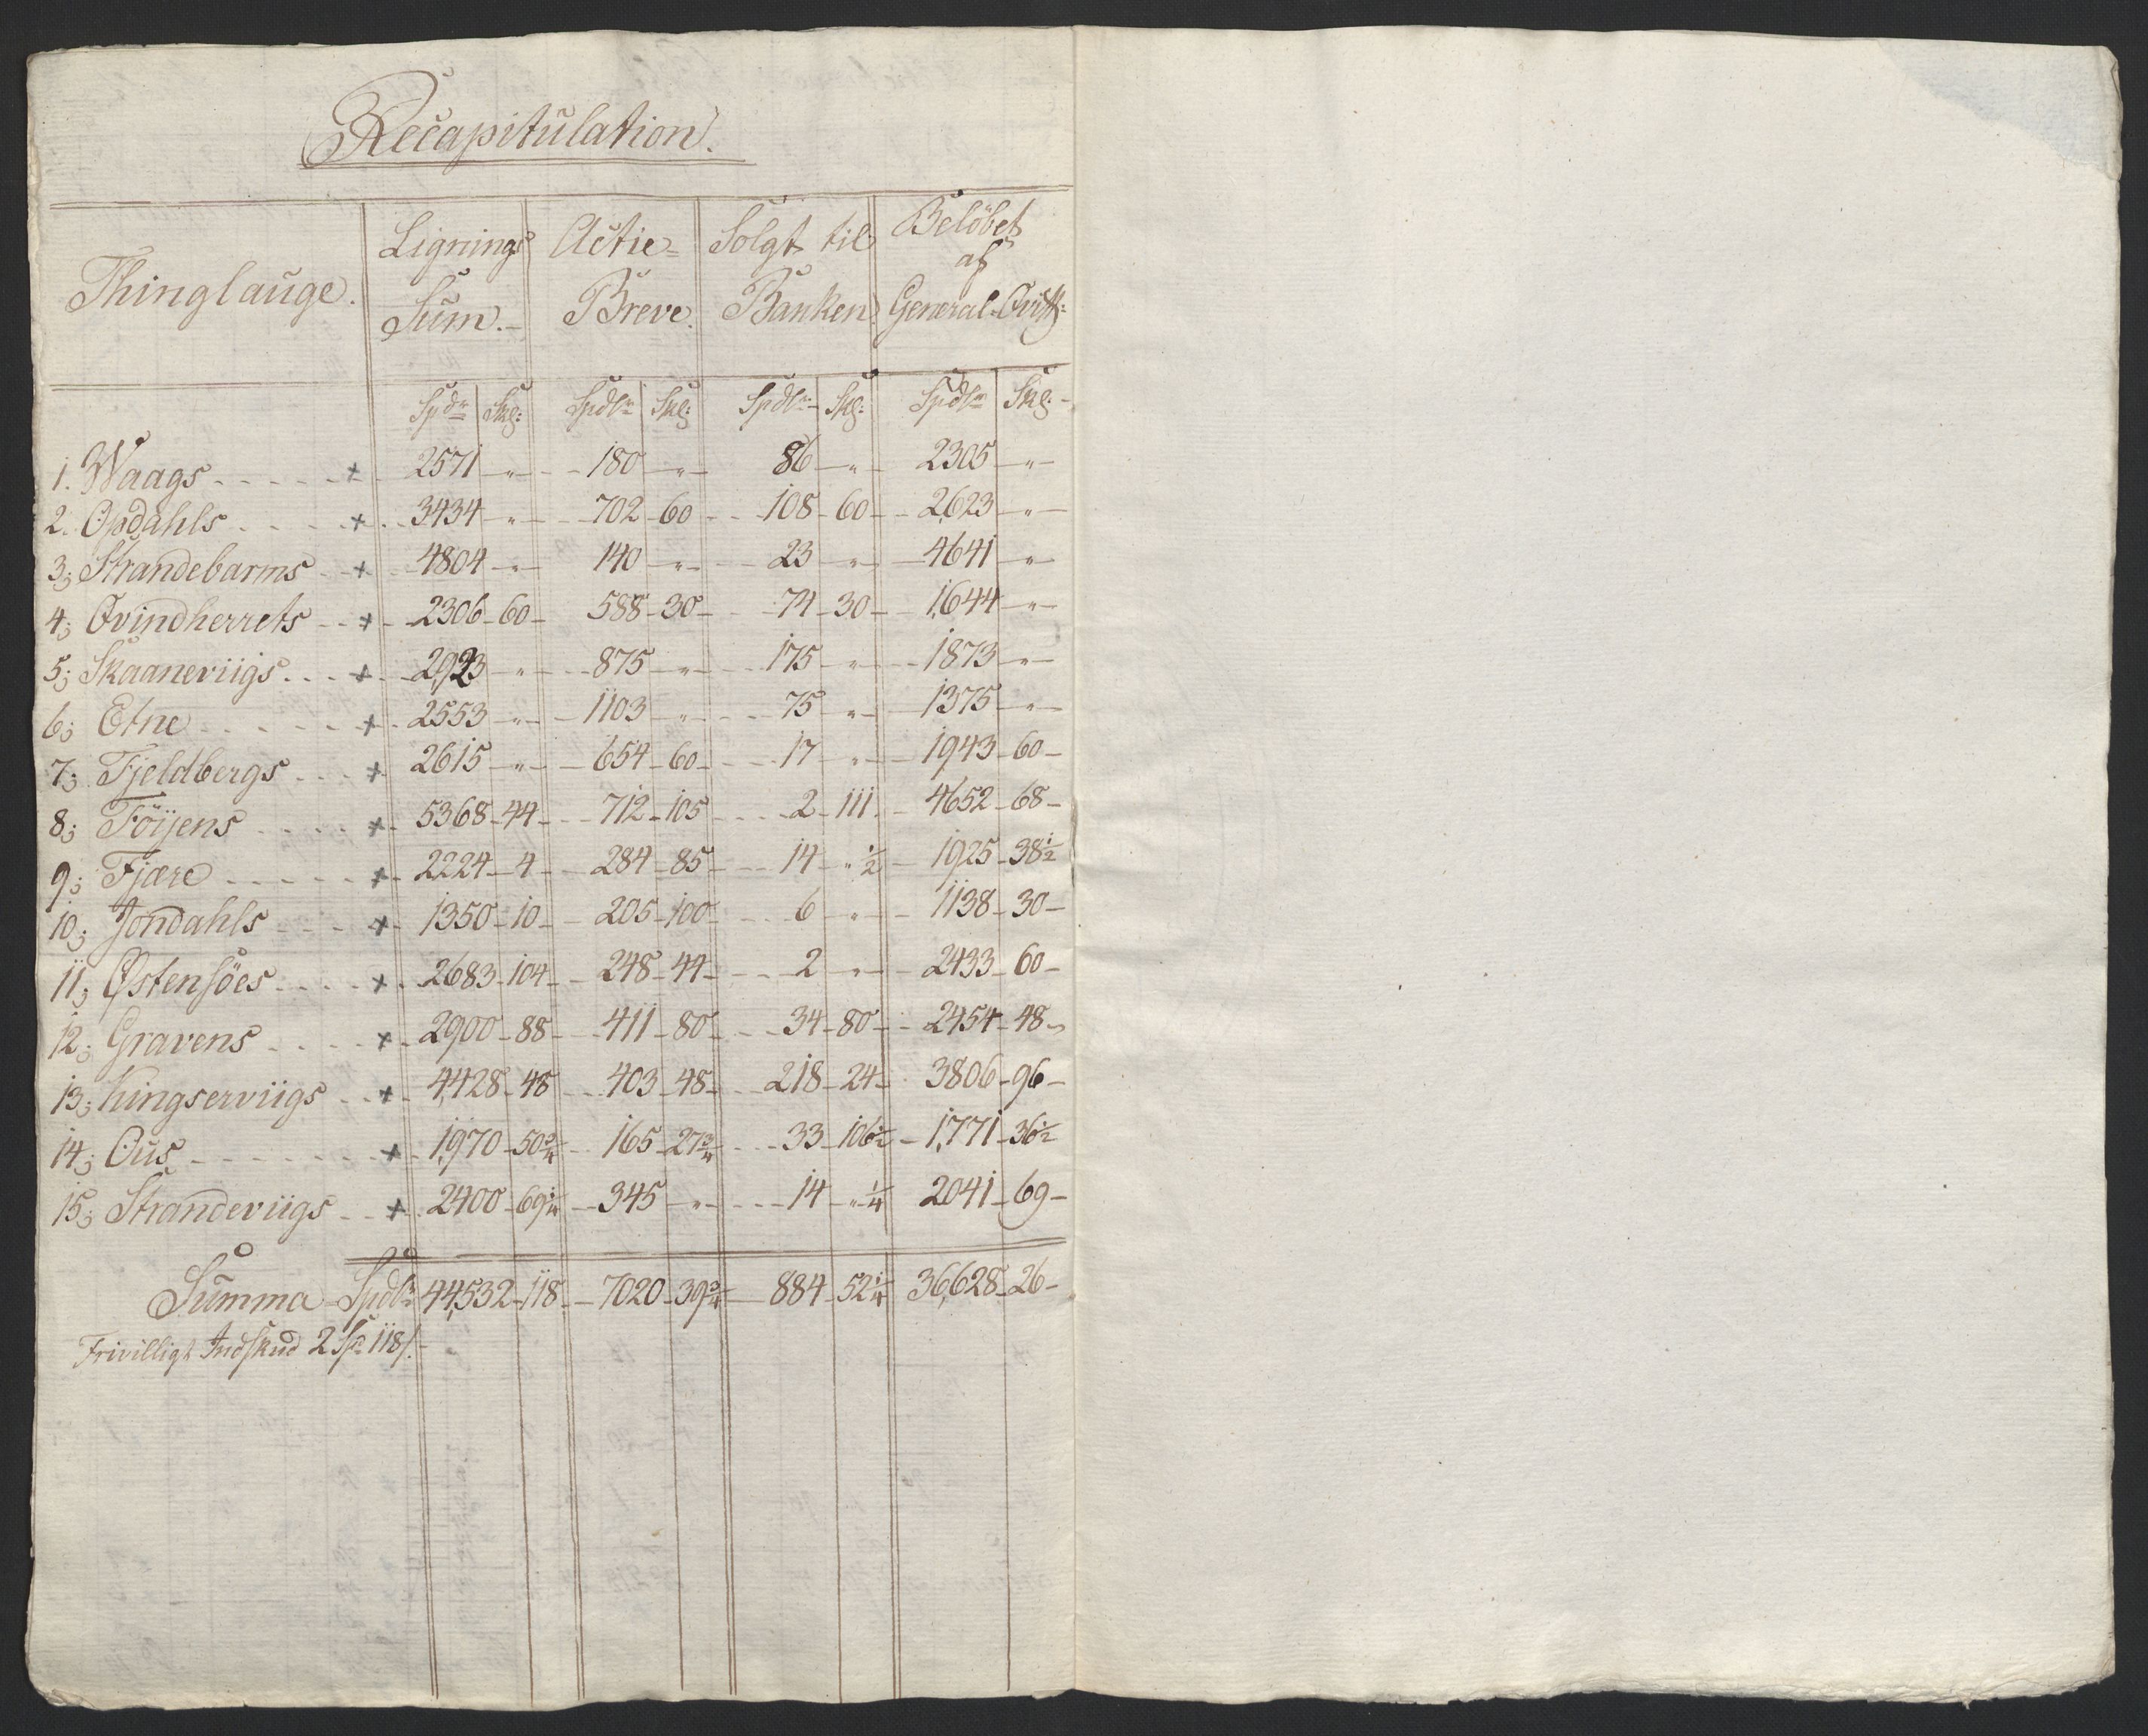 Recapitulation.
Thinglauge. Lignings Sum.- Actie= Breve. Solgt til Banken. Beløbet af General-Qvitt:
Spdr Skg: Spdlr Skg: Spdlr Skg: Spdlr Skg:
1. Waags + 2571 " 180 " 86 " 2305 "
2. Opdahls + 3434 " 702 60 108 60 2623 "
3; Strandebarms + 4804 " 140 " 23 " 4641 "
4; Qvindherrets + 2306 60 588 30 74 30 1644 "
5; Skaaneviigs + 2923 " 875 " 175 " 1873 "
6; Etne + 2553 " 1103 " 75 " 1375 "
7; Fjeldbergs + 2615 " 654 60 17 " 1943 60
8; Föijens + 5368 44 712 105 2 111 4652 68
9; Fjære + 2224 4 284 85 14 " ½ 1925 38½
10; Jondahls + 1350 10 205 100 6 " 1138 30
11; Østensöes + 2683 104 248 44 2 " 2433 60
12; Gravens + 2900 88 411 80 34 80 2454 48
13; Kingserviigs + 4428 48 403 48 218 24 3806 96
14; Ous + 1970 50¾ 165 27¾ 33 106½ 1771 36½
15; Strandeviigs + 2400 69¼ 345 " 14 " ¼ 2041 69
Summa Spdlr 44,532 118 7020 39¾ 884 52¼ 36,628 26
Frivilligt Indskud 2 Spd 118/.-